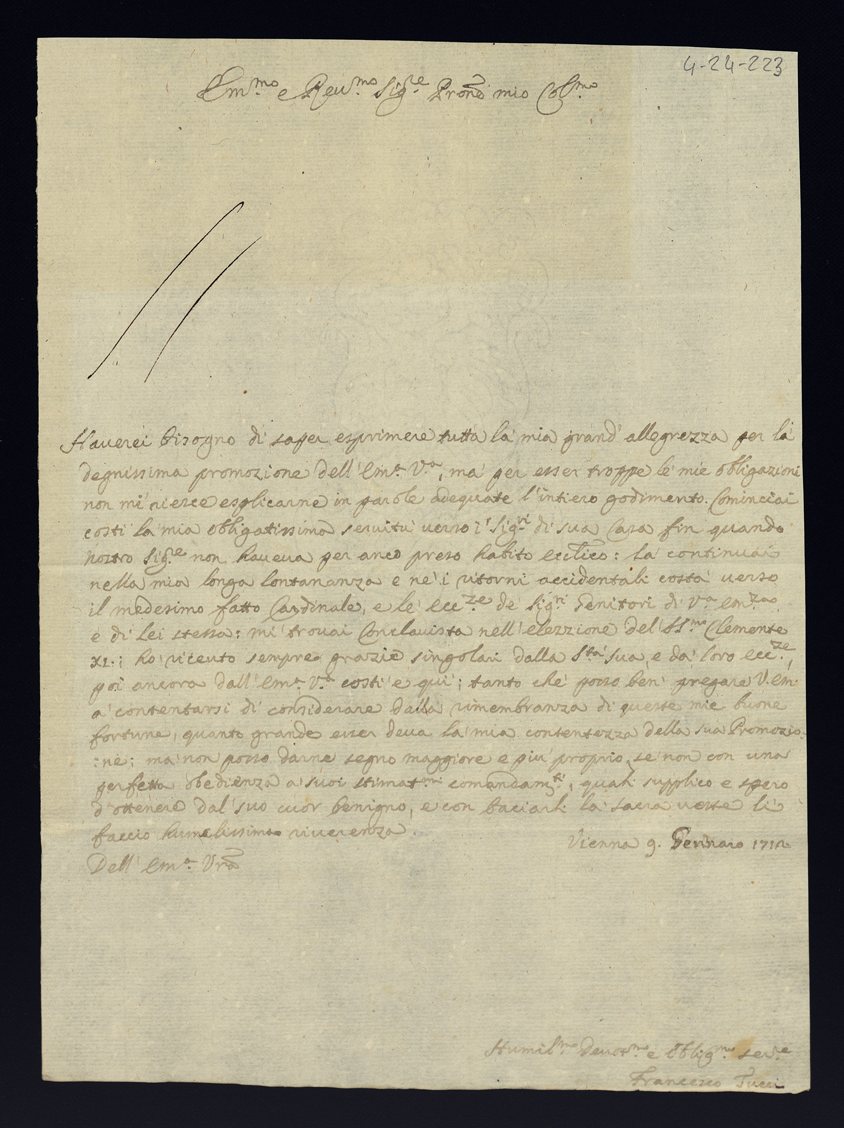 4-24-223
Em.mo e Reu.mo Sig.re Pron͞e mio Col.mo
Hauerei bisogno di saper esprimere tutta la mia grand' allegrezza per la
degnissima promozione dell' Em.a V.a, ma per esser troppe le mie obligazioni
non mi riesce esplicarne in parole adequate l'intiero godimento. Cominciai
costi la mia obligatissima seruitù uerso i Sig.ri di sua Casa fin quando
nostro Sig.re non haueua per anco preso habito eccl͞ico: la continuai
nella mia longa lontananza e ne' i ritorni accidentali costà uerso
il medesimo fatto Cardinale, e le ecc.ze de' Sig.ri Genitori di V.a em.za
e di Lei stessa: mi trouai Conclauista nell' elezzione del SS.mo Clemente
XI: ho riceuto sempre grazie singolari dalla S.tà sua, e da' loro ecc.ze,
poi ancora dall' em.a V.a costi e qui; tanto che posso ben' pregare V. em.
a contentarsi di considerare dalla rimembranza di queste mie buone
fortune, quanto grande esser deua la mia contentezza della sua Promozio:
:ne: ma non posso darne segno maggiore e più proprio, se non con una
perfetta obedienza a suoi stimat.mi comandam.ti, quali supplico e spero
d'ottenere dal suo cuor benigno, e con baciarli la sacra ueste li
faccio humilissima riuerenza.
Vienna 9. Gennaro 1712
Dell' Em.a Vr͞a
Humil.mo Deuot.mo e Oblig.mo ser.e
Francesco Tucci